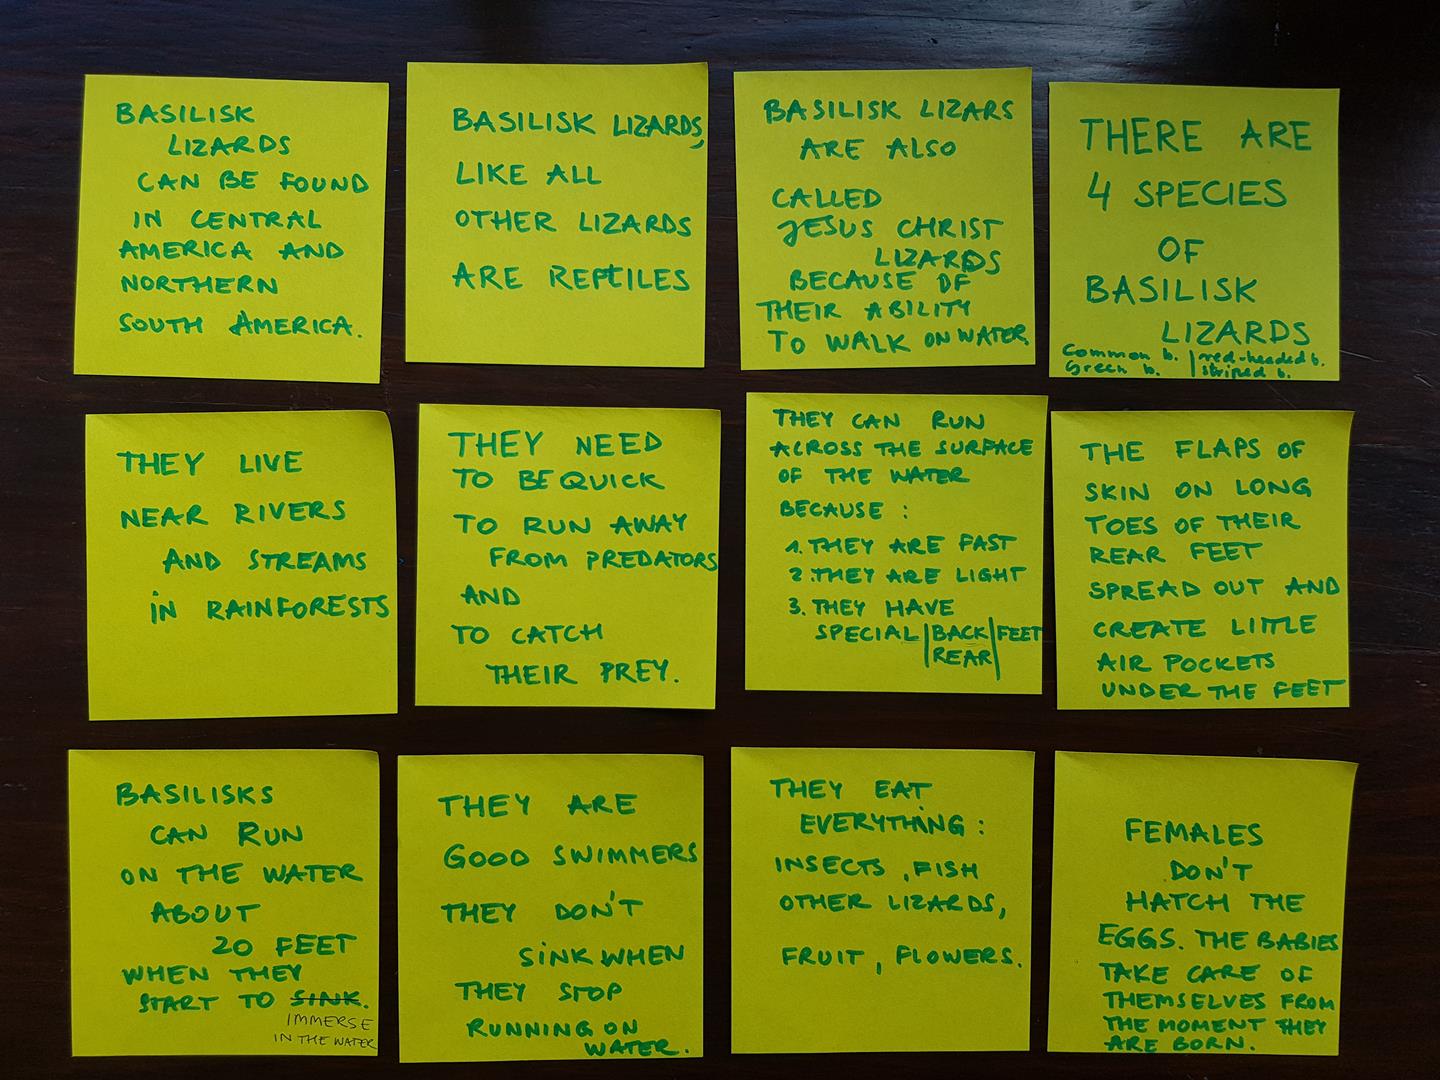 BASILISK
LIZARDS
CAN BE FOUND
IN CENTRAL
AMERICA AND
NORTHERN
SOUTH AMERICA.
BASILISK LIZARDS,
LIKE ALL
OTHER LIZARDS
ARE REPTILES
BASILISK LIZARS
ARE ALSO
CALLED
JESUS CHRIST
LIZARDS
BECAUSE OF
THEIR ABILITY
TO WALK ON WATER
THERE ARE
4 SPECIES
OF
BASILISK
LIZARDS
Common b. | red-headed b.
Green b. | striped b.
THEY LIVE
NEAR RIVERS
AND STREAMS
IN RAINFORESTS
THEY NEED
TO BE QUICK
TO RUN AWAY
FROM PREDATORS
AND
TO CATCH
THEIR PREY.
THEY CAN RUN
ACROSS THE SURFACE
OF THE WATER
BECAUSE :
1. THEY ARE FAST
2. THEY ARE LIGHT
3. THEY HAVE
SPECIAL | BACK | FEET
REAR
THE FLAPS OF
SKIN ON LONG
TOES OF THEIR
REAR FEET
SPREAD OUT AND
CREATE LITTLE
AIR POCKETS
UNDER THE FEET
BASILISKS
CAN RUN
ON THE WATER
ABOUT
20 FEET
WHEN THEY
START TO SINK.
IMMERSE
IN THE WATER
THEY ARE
GOOD SWIMMERS
THEY DON'T
SINK WHEN
THEY STOP
RUNNING ON
WATER.
THEY EAT
EVERYTHING :
INSECTS, FISH
OTHER LIZARDS,
FRUIT, FLOWERS.
FEMALES
DON'T
HATCH THE
EGGS. THE BABIES
TAKE CARE OF
THEMSELVES FROM
THE MOMENT THEY
ARE BORN.